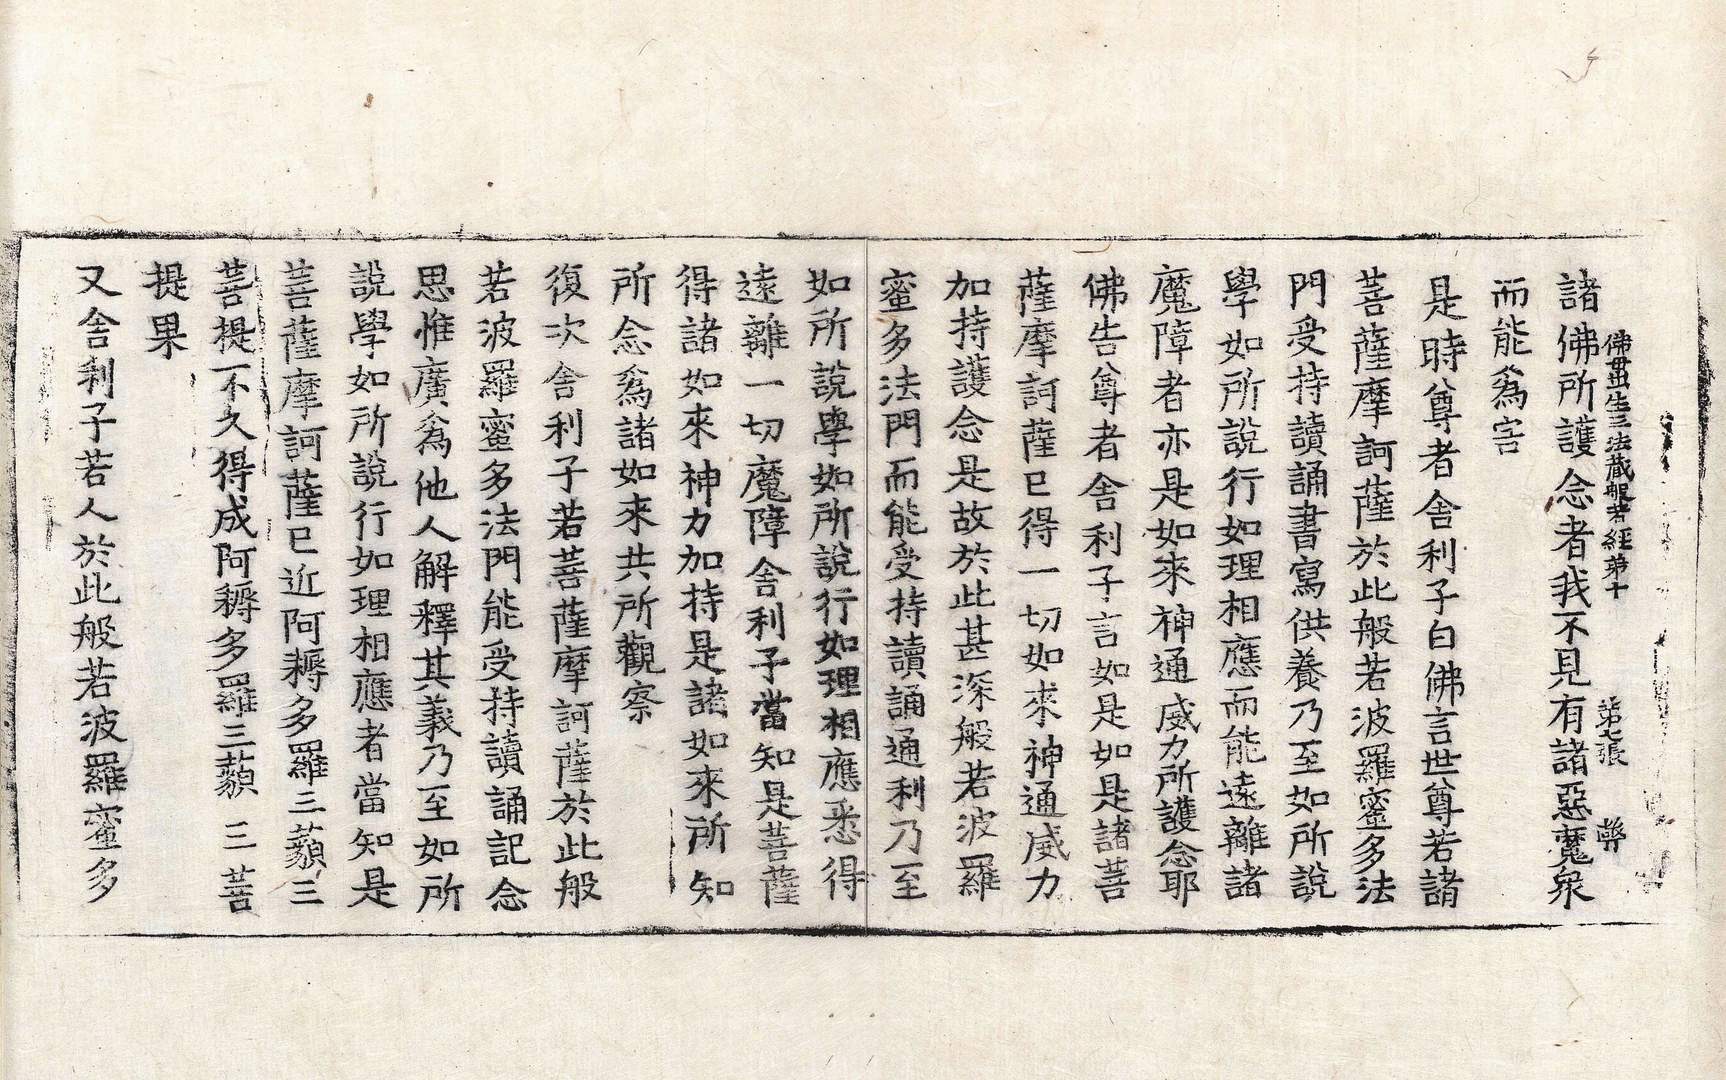 佛母出生三法藏般若經第十　第七張　弊
諸佛所護念者我不見有諸惡魔衆
而能爲害
是時尊者舍利子白佛言世尊若諸
菩薩摩訶薩於此般若波羅蜜多法
門受持讀誦書寫供養乃至如所說
學如所說行如理相應而能遠離諸
魔障者亦是如來神通威力所護念耶
佛告尊者舍利子言如是如是諸菩
薩摩訶薩已得一切如來神通威力
加持護念是故於此甚深般若波羅
蜜多法門而能受持讀誦通利乃至
如所說學如所說行如理相應悉得
遠離一切魔障舍利子當知是菩薩
得諸如來神力加持是諸如來所知
所念爲諸如來共所觀察
復次舍利子若菩薩摩訶薩於此般
若波羅蜜多法門能受持讀誦記念
思惟廣爲他人解釋其義乃至如所
說學如所說行如理相應者當知是
菩薩摩訶薩已近阿耨多羅三藐三
菩提不久得成阿耨多羅三藐三菩
提果
又舍利子若人於此般若波羅蜜多